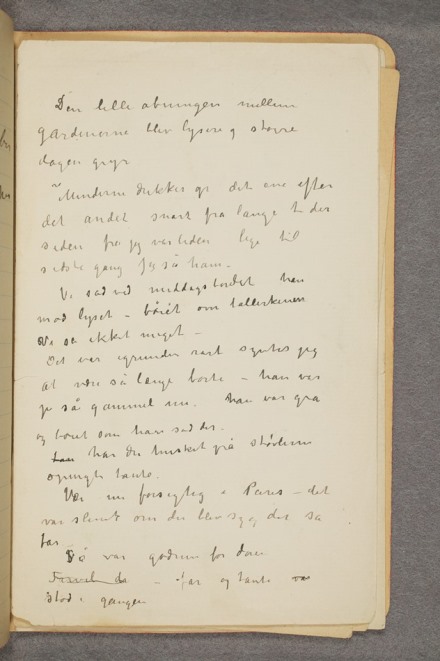 Den lille åbningen mellem
gardinerne blev lysere og større
dagen gryr
Minderne dukker op det ene efter
det andet snart fra lange tider
siden fra jeg var liden lige til
sidste gang jeg så ham.
Vi sad ved middagsbordet han
mod lyset – bøiet om tallerkenen
Vi sa ikke meget –
Det var igrunden rart syntes jeg
at være så længe borte – han var
jo så gammel nu. Han var grå
og bøiet som han sad der.
har du husket på støvlerne
spurgte tante.
Vær nu forsigtig i Paris – det
var slemt om du blev syg der sa
far.
Så var godnu for døren
– far og tante
stod i gangen